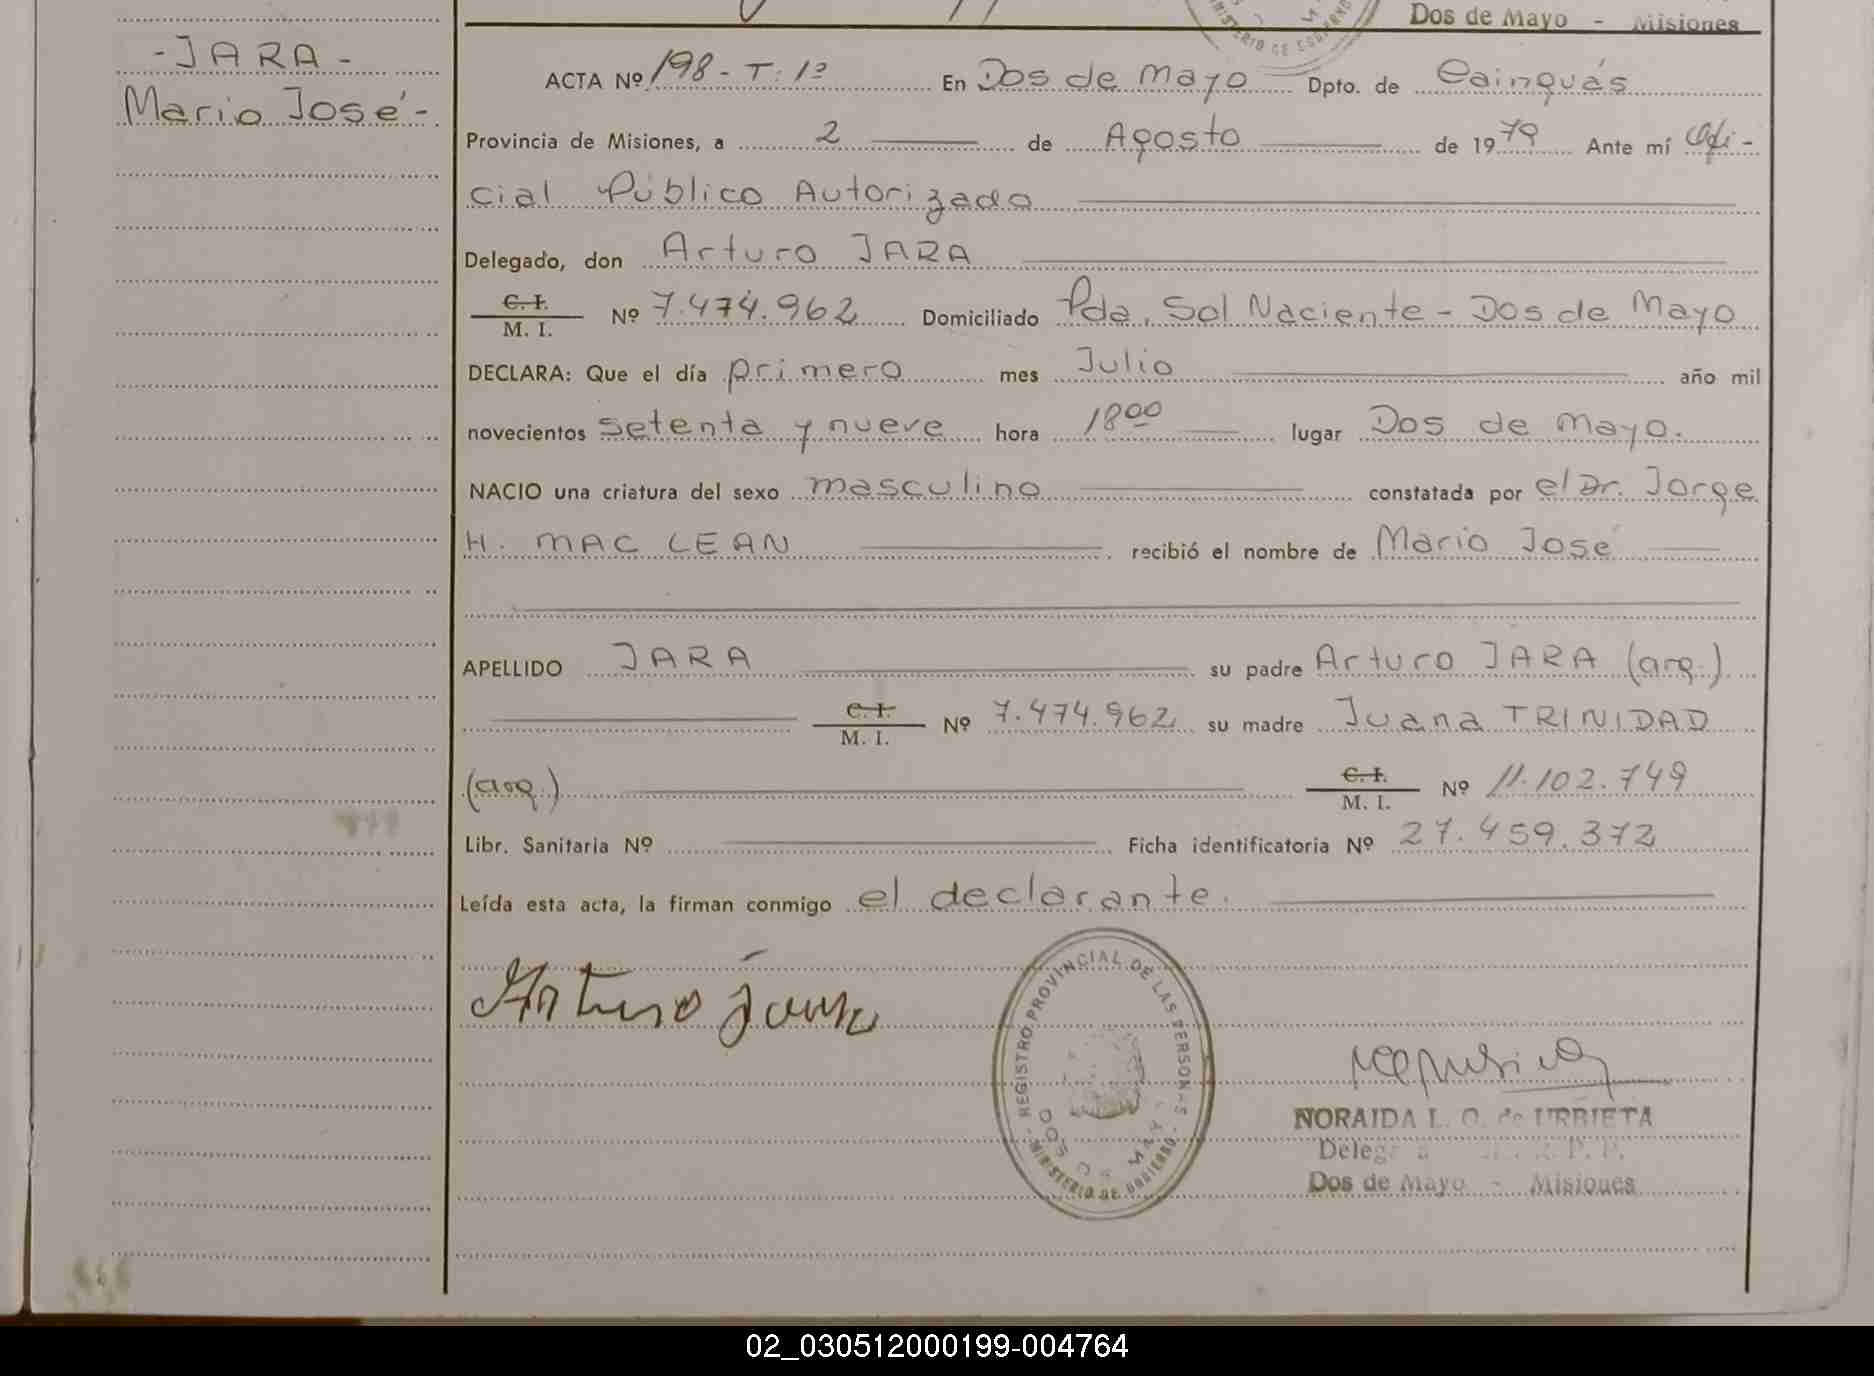 Dos de Mayo - Misiones
- JARA -
Mario José -
ACTA Nº 198 - T: 1º En Dos de Mayo Dpto. de Cainguás
Provincia de Misiones, a 2 de Agosto de 1979 Ante mí Ofi-
cial Público Autorizado
Delegado, don Arturo JARA
C. I.
M. I. Nº 7.474.962 Domiciliado Pda. Sol Naciente - Dos de Mayo
DECLARA: Que el día primero mes Julio año mil
novecientos setenta y nueve hora 18 00 lugar Dos de Mayo.
NACIO una criatura del sexo masculino constatada por el Dr. Jorge
H. MAC LEAN recibió el nombre de Mario José
APELLIDO JARA su padre Arturo JARA (arg.)
C. I.
M. I. Nº 7.474.962 su madre Juana TRINIDAD
(arg.) C. I.
M. I. Nº 11.102.749
Libr. Sanitaria Nº Ficha identificatoria Nº 27.459.372
Leída esta acta, la firman conmigo el declarante.
Arturo Jara
REGISTRO PROVINCIAL DE LAS PERSONAS
DOS DE MAYO
- MINISTERIO DE GOBIERNO -
NORAIDA L. O. de URBIETA
Dos de Mayo - Misiones
02_030512000199-004764